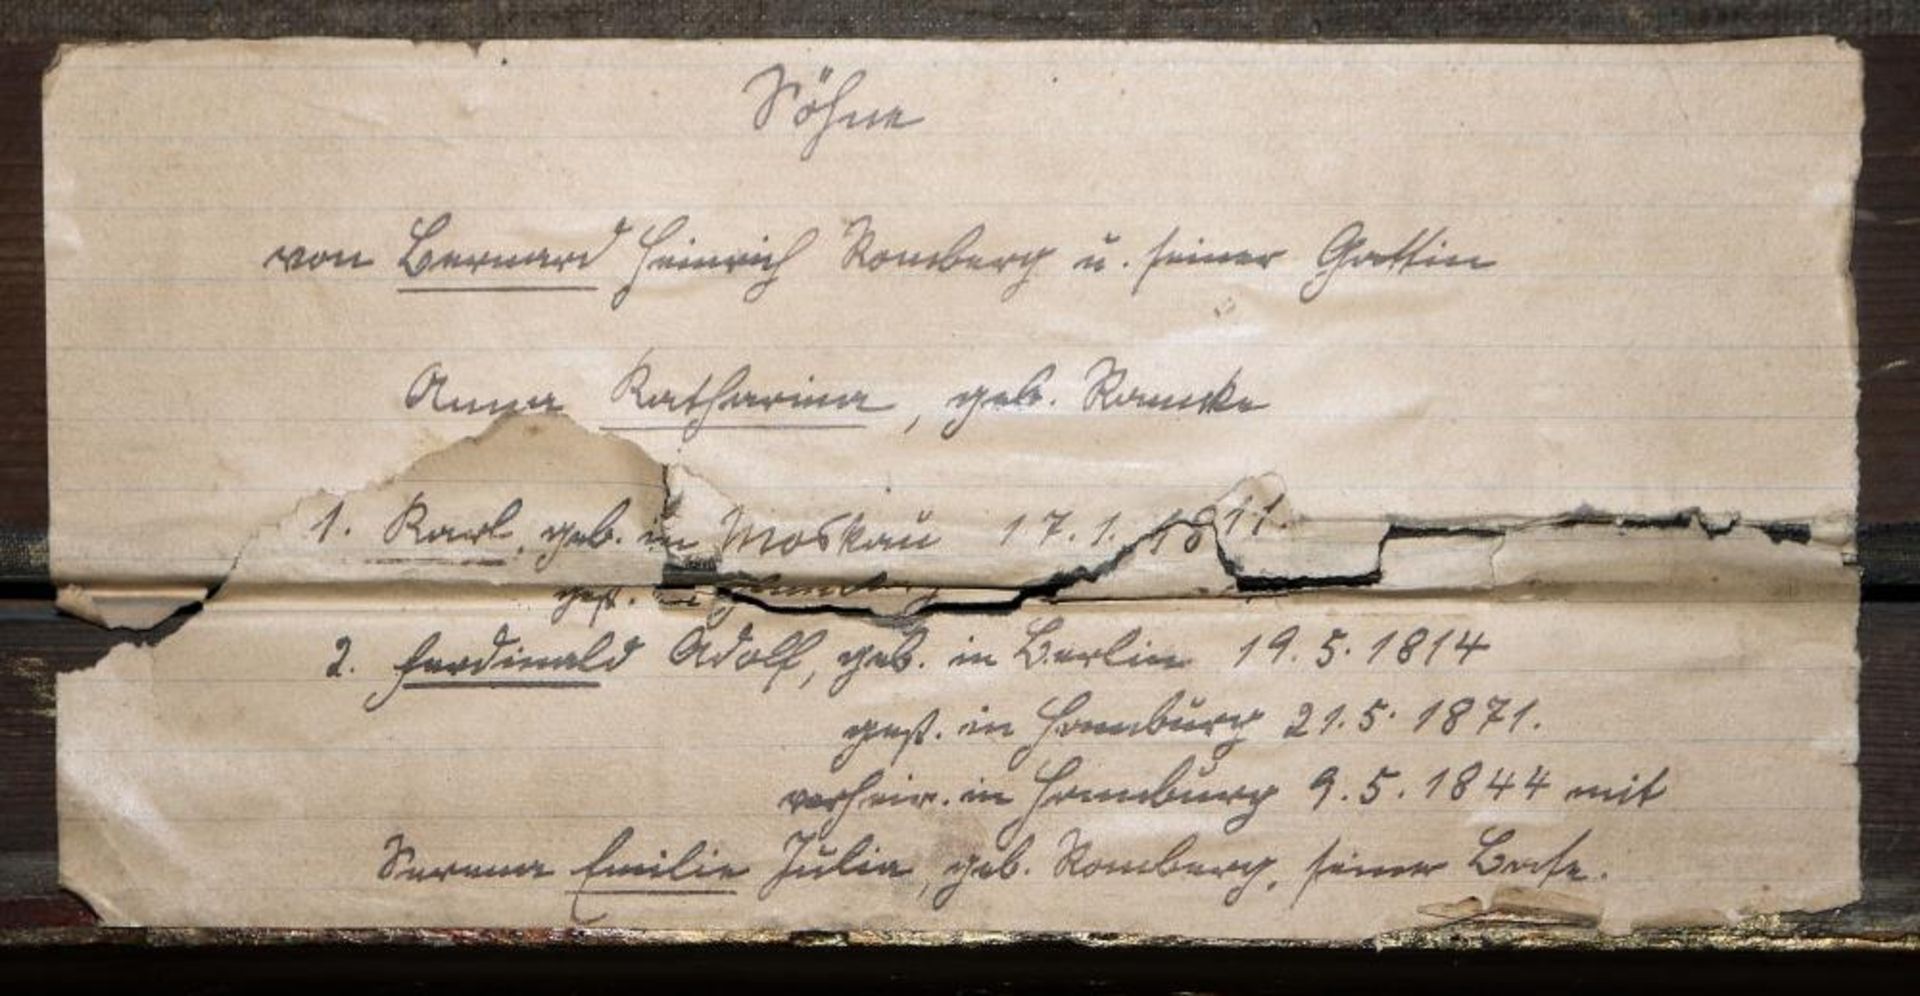 Söhne
von Bernard Heinrich Romberg u. seiner Gattin
Anna Katharina, geb. Ramcke
1. Karl, geb. in Moskau 17.1.1811.
gest. in Hamburg
2. Ferdinand Adolf, geb. in Berlin 19.5.1814
gest. in Hamburg 21.5.1871.
verheir. in Hamburg 9.5.1844 mit
Serena Emilie Julia, geb. Romberg, seiner Base.